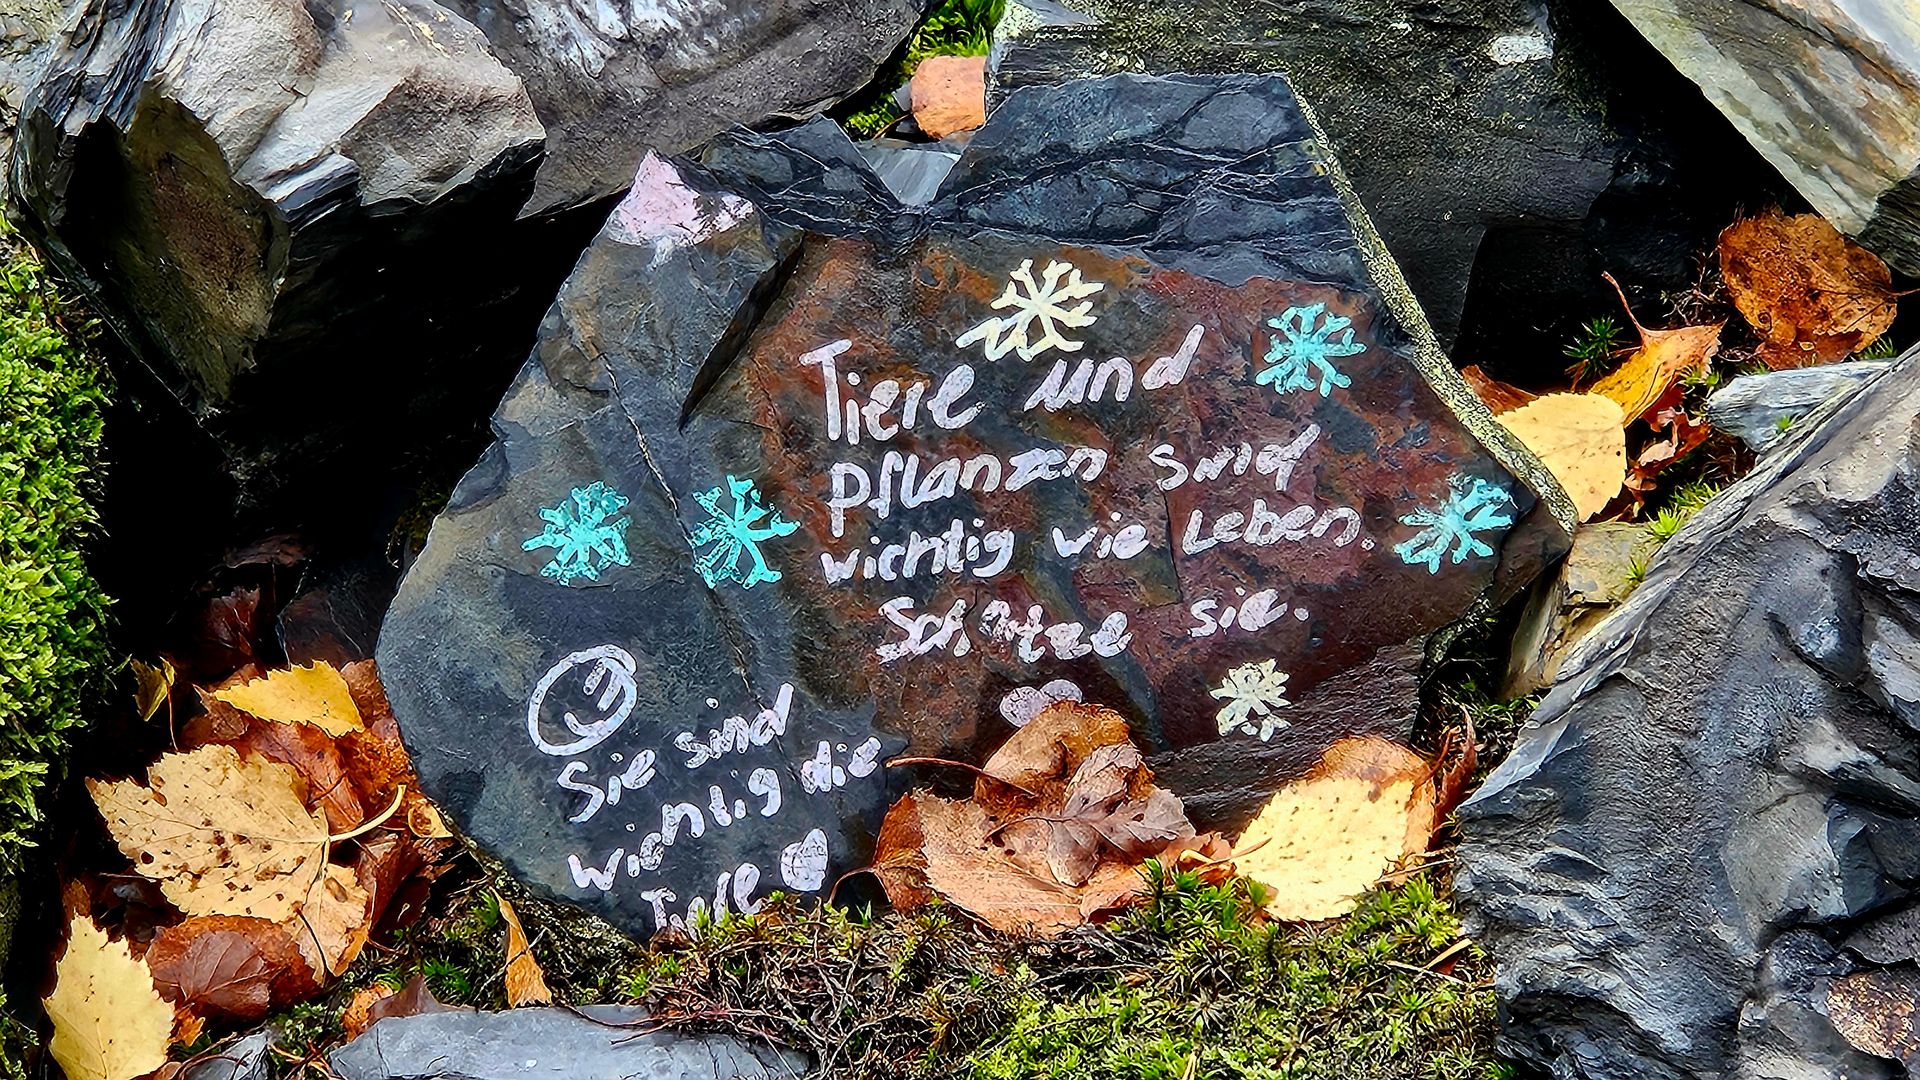 Tiere und
Pflanzen sind
wichtig wie Leben.
Schütze sie.
Sie sind
wichtig die
Tiere